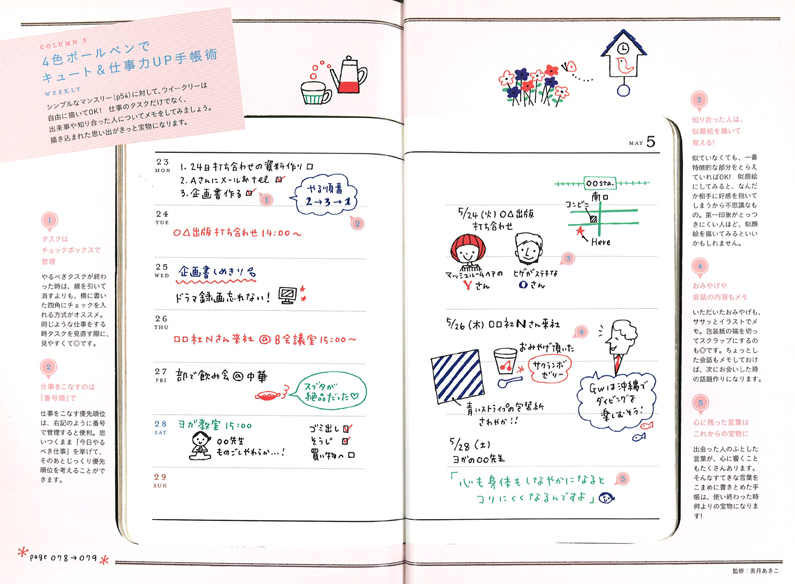 COLUMN 3
4色ボールペンで
キュート＆仕事力UP手帳術
WEEKLY
シンプルなマンスリー（p54）に対して、ウイークリーは
自由に描いてOK！ 仕事のタスクだけでなく、
出来事や知り合った人についてメモをしてみましょう。
描き込まれた思い出がきっと宝物になります。
1
タスクは
チェックボックスで
管理
やるべきタスクが終わ
った時は、線を引いて
消すよりも、横に書い
た四角にチェックを入
れる方式がオススメ。
同じような仕事をする
時タスクを見直す際に、
見やすくて◎です。
2
仕事をこなすのは
「番号順」で
仕事をこなす優先順位
は、右記のように番号
で管理すると便利。思
いつくまま「今日やる
べき仕事」を挙げて、
そのあとじっくり優先
順位を考えることがで
きます。
23
MON
1. 24日打ち合わせの資料作り
2. Aさんにメール&tel
3. 企画書作る
1
やる順番
2→3→1
2
24
TUE
○△出版打ち合わせ 14:00〜
25
WED
企画書しめきり
ドラマ録画忘れない！
26
THU
□□社Nさん来社 @B会議室 15:00〜
27
FRI
部で飲み会@中華
スブタが
絶品だった♡
28
SAT
ヨガ教室 15:00
○○先生
ものごしやわらか…！
ゴミ出し
そうじ
買い物へ
29
SUN
MAY 5
5/24（火）○△出版
打ち合わせ
マッシュルームヘアの
Yさん
ヒゲがステキな
Oさん
3
○○sta.
南口
コンビニ
Here
5/26（木）□□社Nさん来社
4
おみやげ頂いた
サクランボ
ゼリー
青いストライプの包装紙
さわやか!!
GWは沖縄で
ダイビングを
楽しむそう！
5/28（土）
ヨガの○○先生
「心も身体もしなやかになると
コリにくくなるんですよ」
5
3
知り合った人は、
似顔絵を描いて
覚える！
似ていなくても、一番
特徴的な部分をとらえ
ていればOK！ 似顔絵
にしてみると、なんだ
か相手に好感を抱いて
しまうから不思議なも
の。第一印象がとっつ
きにくい人ほど、似顔
絵を描いてみるといい
かもしれません。
4
おみやげや
会話の内容もメモ
いただいたおみやげも、
ササッとイラストでメ
モ。包装紙の端を切っ
てスクラップにするの
も◎です。ちょっとし
た会話もメモしておけ
ば、次にお会いした時
の話題作りになります。
5
心に残った言葉は
これからの宝物に
出会った人のふとした
言葉が、心に響くこと
もたくさんあります。
そんなすてきな言葉を
こまめに書きとめた手
帳は、使い終わった時
何よりの宝物になりま
す！
page 078→079
監修：美月あきこ